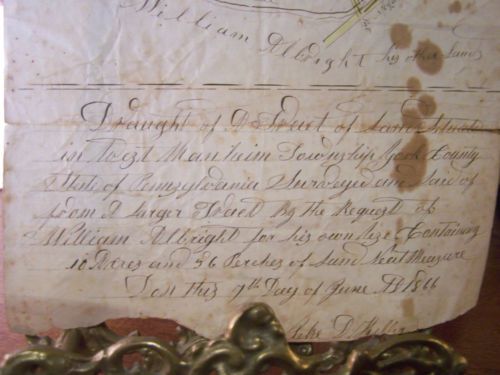 William Albright his other Land
Draught of A Tract of Land Situate
in West Manheim Township York County
& State of Pennsylvania Surveyed and Laid of
from A larger Tract By the Request of
William Albright for his own Use, Containing
10 Acres and 56 Perches of Land Neat Measure
Don this 9th Day of June AD 1866